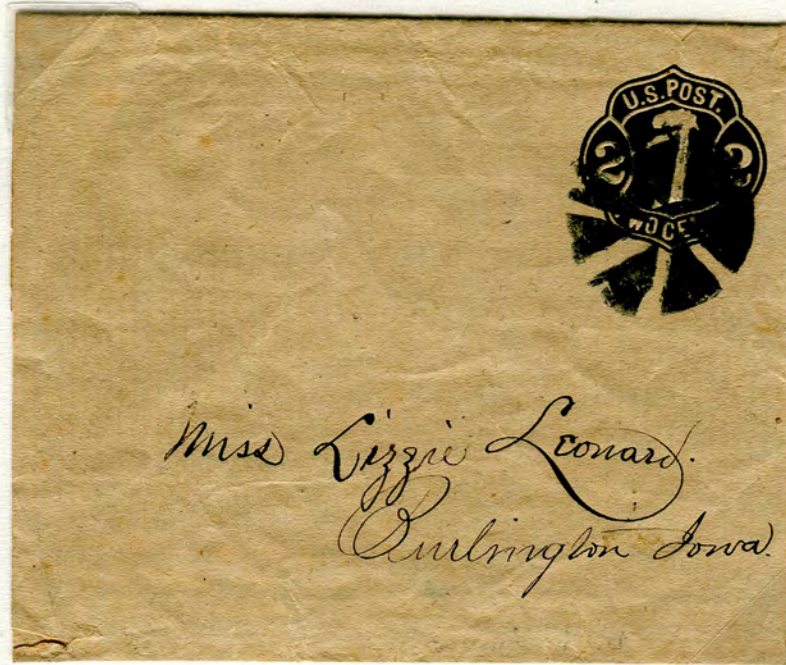 U.S. POST.
2 2
Miss Lizzie Leonard.
Burlington Iowa.